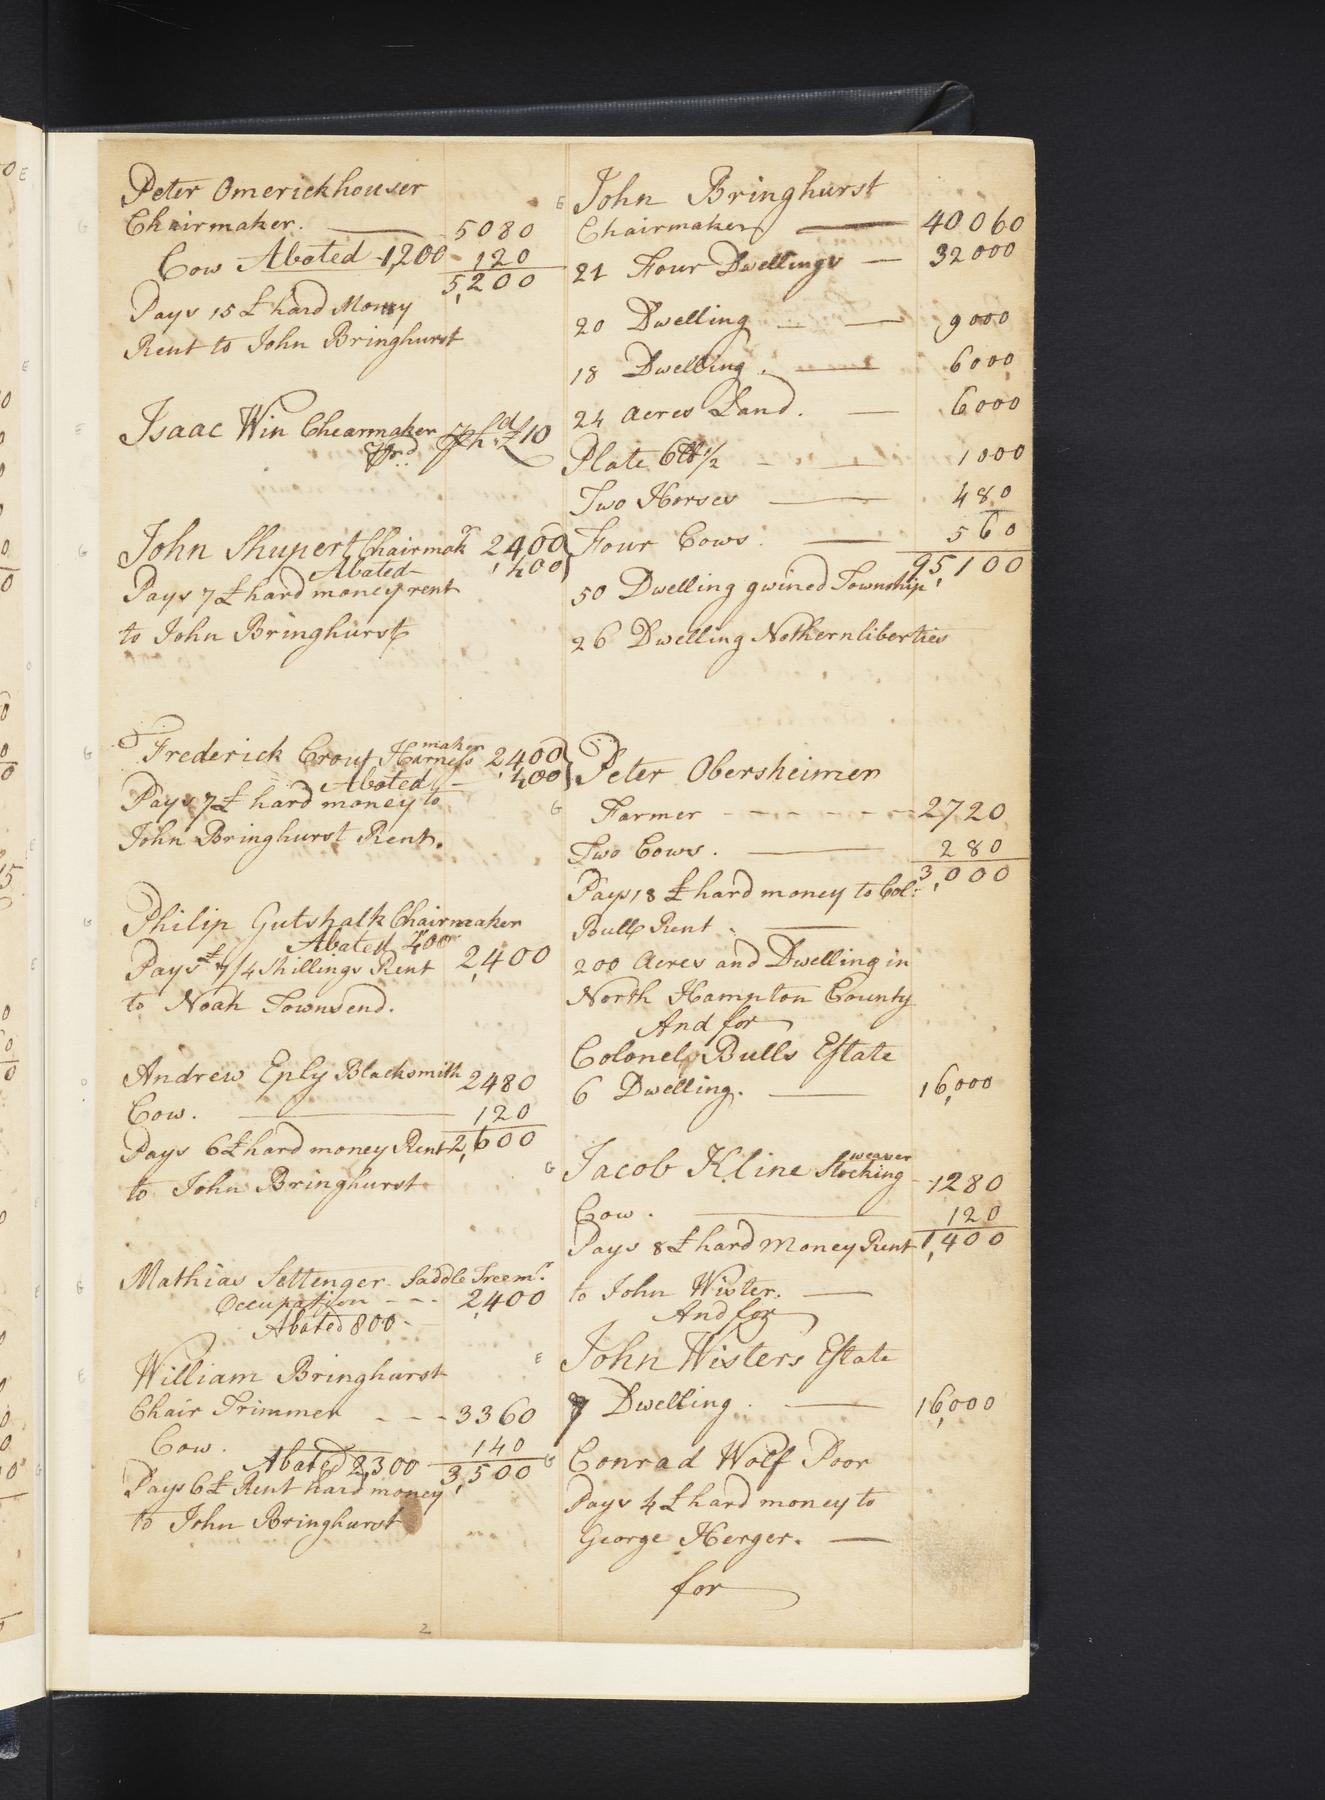 Peter Omerickhouser
Chairmaker. 5080
Cow Abated 1,200 120
5,200
Pays 15 £ hard Money
Rent to John Bringhurst
Isaac Win Chearmaker £10
John Shupert Chairmakr 2,400
Abated 400
Pays 7 £ hard money rent
to John Bringhurst
Frederick Crout Harness maker 2,400
Abated 400
Pays 7 £ hard money to
John Bringhurst Rent.
Philip Gutshalk Chairmaker
Abated 400
Pays £ 7/4 Shillings Rent 2,400
to Noah Townsend.
Andrew Eply Blacksmith 2480
Cow. 120
Pays 6 £ hard money Rent 2,600
to John Bringhurst
Mathias Settenger Saddle Treemr.
Occupation 2,400
Abated 800
William Bringhurst
Chair Trimmer 3360
Cow. 140
Abated 2,300 3,500
Pays 6 £ Rent hard money
to John Bringhurst
2
G John Bringhurst
Chairmaker 40060
21 Four Dwellings 32000
20 Dwelling 9000
18 Dwelling. 6000
24 acres Land. 6000
Plate 6 lb 1/2 1000
Two Horses 480
Four Cows. 560
95,100
50 Dwelling gwined Township
26 Dwelling Nothernliberties
Peter Obersheimer
G Farmer 2720
Two Cows. 280
3,000
Pays 18 £ hard money to Col:
Bulls Rent
200 Acres and Dwelling in
North Hampton County
And for
Colonel Bulls Estate
6 Dwelling. 16,000
G Jacob Kline Stocking weaver 1280
Cow. 120
Pays 8 £ hard Money Rent 1,400
to John Wister.
And for
E John Wisters Estate
7 Dwelling. 16,000
G Conrad Wolf Poor
Pays 4 £ hard money to
George Herger.
for